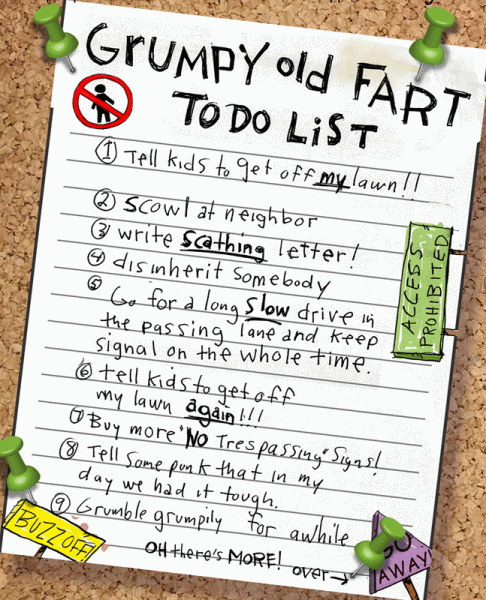 GRUMPY old FART
TO DO LiST
① Tell kids to get off my lawn!!
② Scowl at neighbor
③ write scathing letter!
④ disinherit somebody
⑤ Go for a long slow drive in
the passing lane and keep
signal on the whole time.
⑥ tell kids to get off
my lawn again!!!
⑦ Buy more "NO Trespassing" Signs!
⑧ Tell some punk that in my
day we had it tough.
⑨ Grumble grumpily for awhile
OH there's MORE!
over→
ACCESS
PROHIBITED
BUZZ OFF
GO
AWAY!